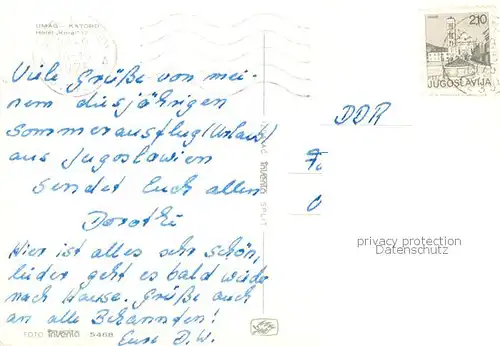 UMAG - KATORO
Hotel „Koralj"
Viele Grüße von mei-
nem diesjährigen
Sommerausflug (Urlaub)
aus Jugoslawien
sendet Euch allen
Dorothé
Hier ist alles sehr schön,
leider geht es bald wieder
nach Hause. Grüße auch
an alle Bekannten!
Eure D.W.
FOTO 5468
SPLIT
2,10
JUGOSLAVIJA
DDR
privacy protection
Datenschutz